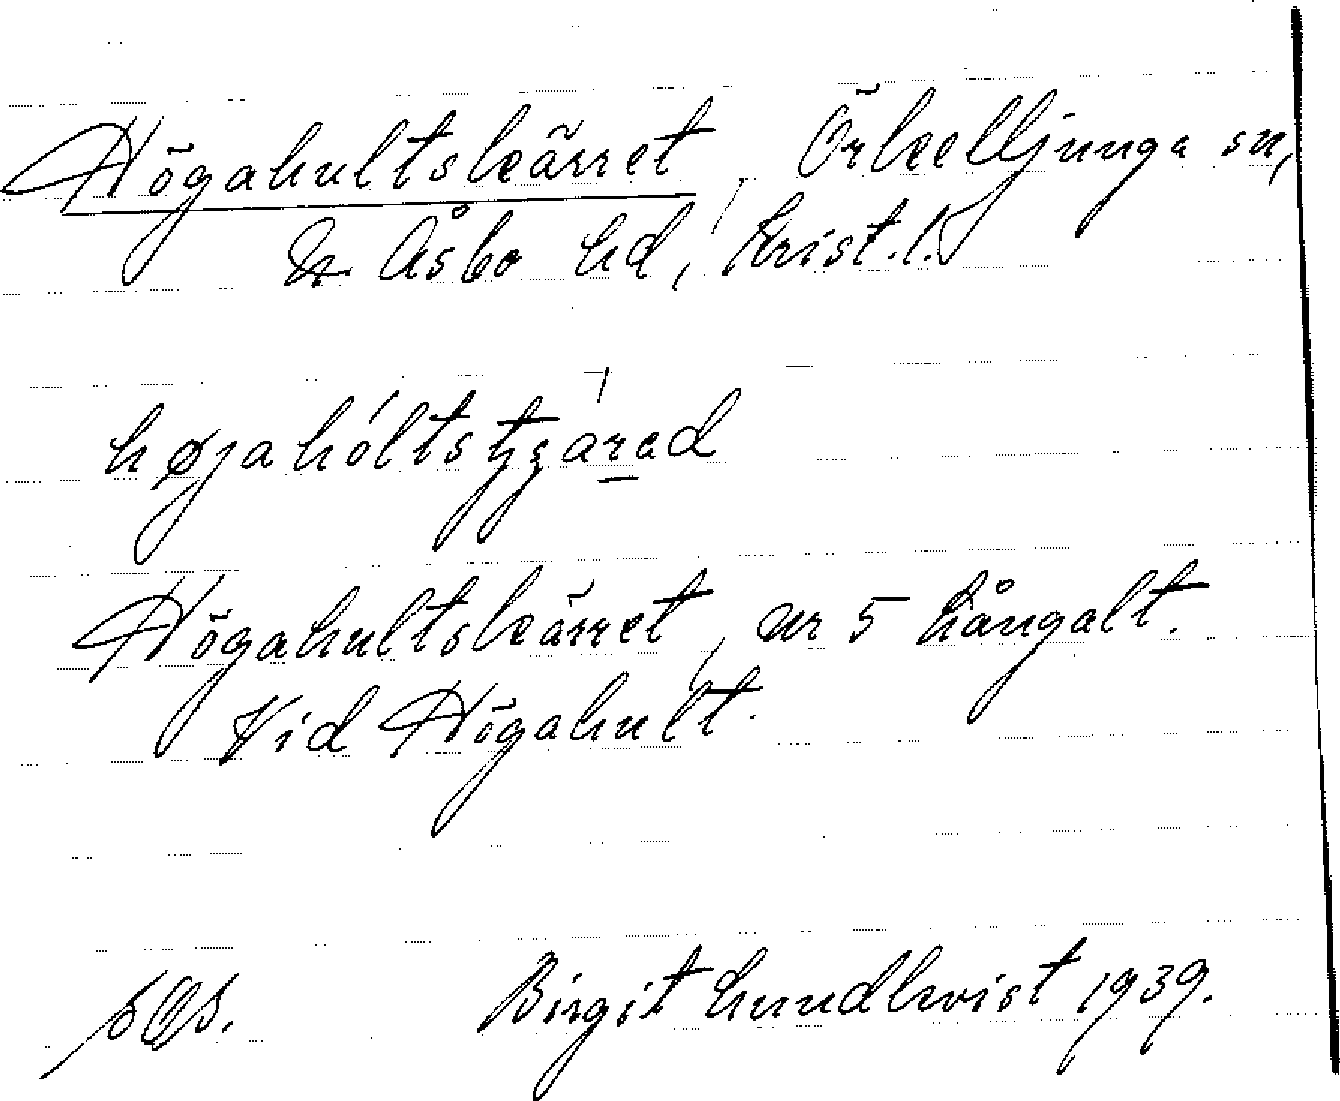 Högahultskärret, Örkelljunga sn,
N. Åsbo hd, Krist. l.
højahóltstʒárad
Högahultskärret, nr 5 Långalt.
Vid Högahult.
Birgit Lundkvist 1939.